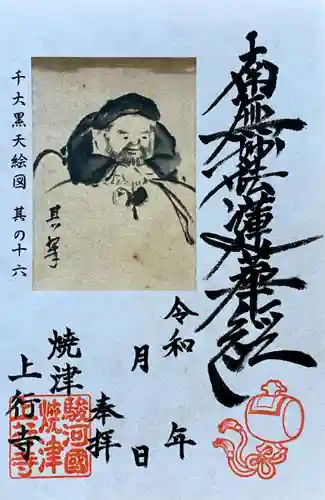 南無妙法蓮華経
千大黒天絵図 其の十六
令和 年
月 日
奉拝
焼津
上行寺
駿河國
焼津
上行寺